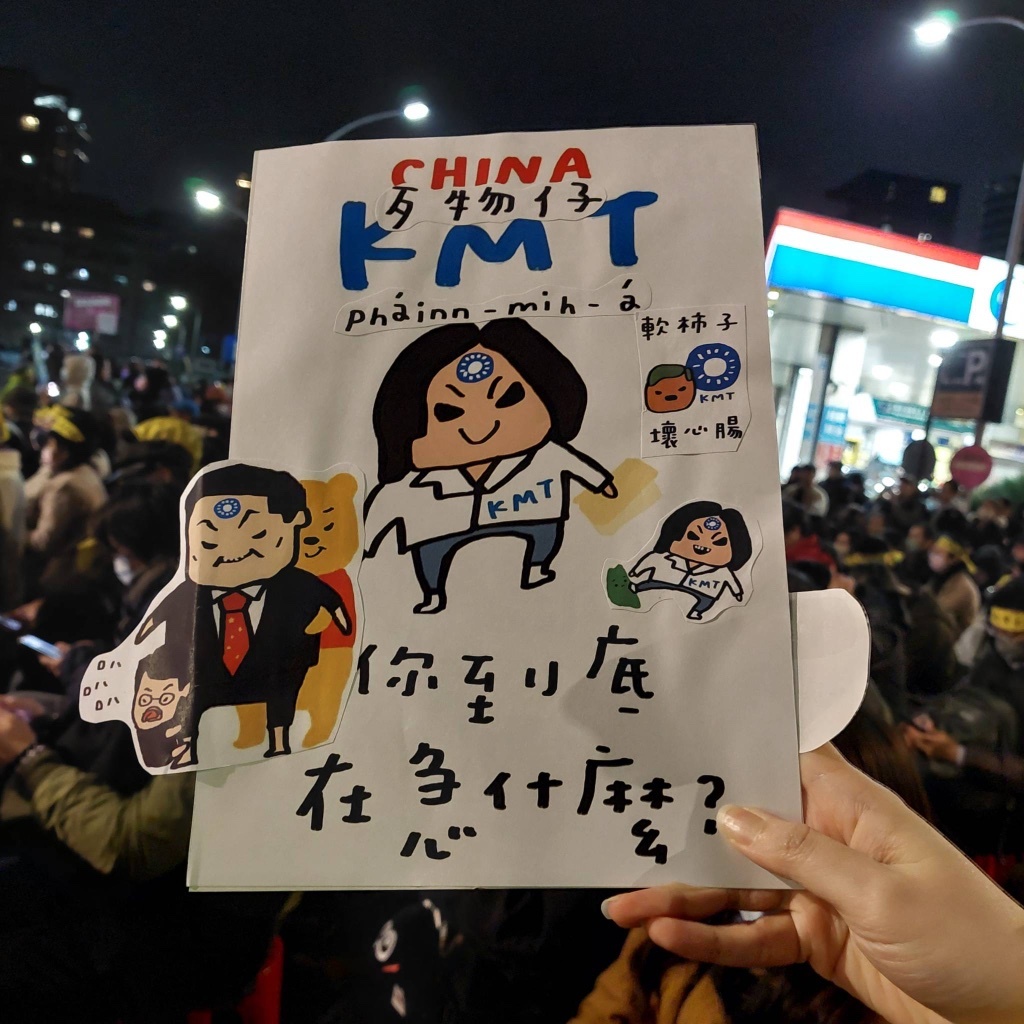 CHINA
歹物仔
KMT
pháinn-mih-á
軟柿子
KMT
壞心腸
KMT
KMT
叭
叭
叭
你到底
在急什麼?